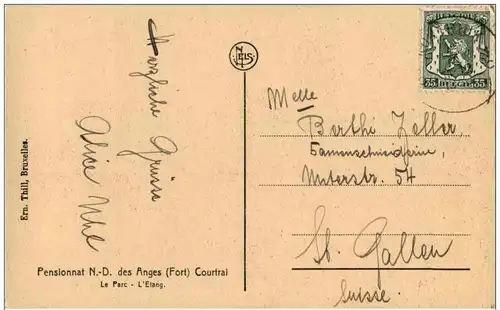 Herzliche Grüsse
Alice
Ern. Thill, Bruxelles.
Pensionnat N.-D. des Anges (Fort) Courtrai
Le Parc - L'Etang.
NELS
35 35
Melle
Berthi Zeller,
Damenschneiderin,
Unterstr. 54
St. Gallen
Suisse.